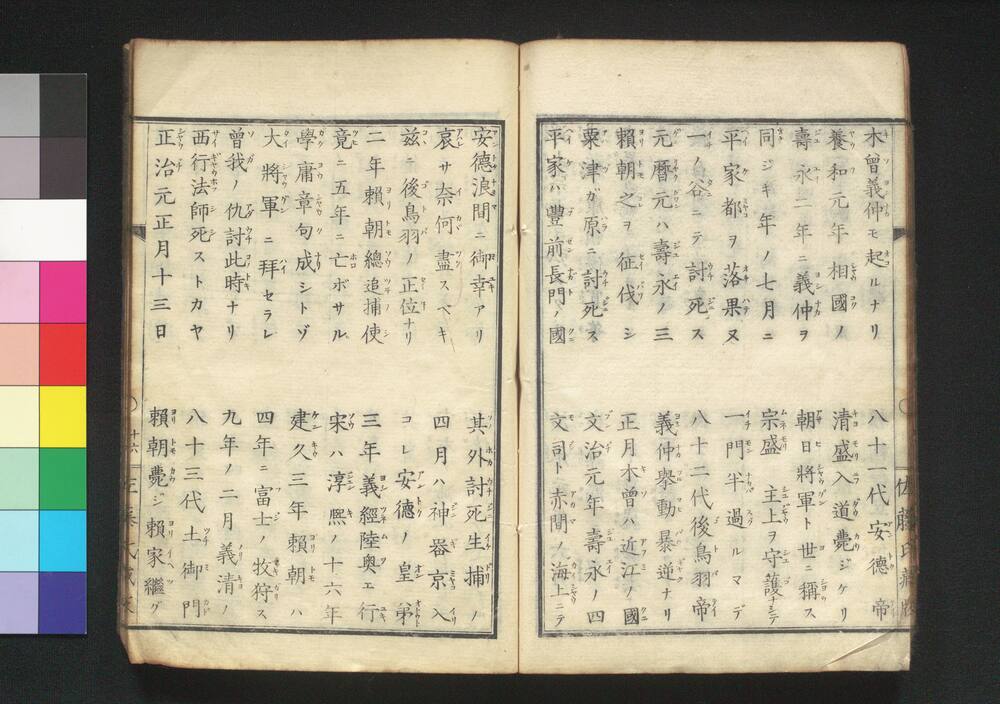 木曾義仲モ起ルナリ 八十一代安德帝
養和元年相國ノ 清盛入道薨ジケリ
壽永二年ニ義仲ヲ 朝日將軍ト世ニ稱ス
同ジキ年ノ七月ニ 宗盛 主上ヲ守護ナシテ
平家都ヲ落果ヌ 一門半過ルマデ
一ノ谷ニテ討死ス 八十二代後鳥羽帝
元暦元ハ壽永ノ三 義仲擧動暴逆ナリ
賴朝之ヲ征伐シ 正月木曾ハ近江ノ國
粟津ガ原ニ討死ス 文治元年壽永ノ四
平家ハ豊前長門ノ國 文司ト赤間ノ海上ニテ
安德浪間ニ御幸アリ 其外討死生捕ノ
哀サ奈何盡スベキ 四月ハ神器京入
茲ニ後鳥羽ノ正位ナリ コレ安德ノ皇弟
二年賴朝總追捕使 三年義經陸奥エ行
竟ニ五年ニ亡ボサル 宋ハ淳熈ノ十六年
學庸章句成シトゾ 建久三年賴朝ハ
大將軍ニ拜セラレ 四年ニ富士ノ牧狩ス
曾我ノ仇討此時ナリ 九年ノ二月義清ノ
西行法師死ストカヤ 八十三代土御門
正治元正月十三日 賴朝薨ジ賴家繼グ
十六